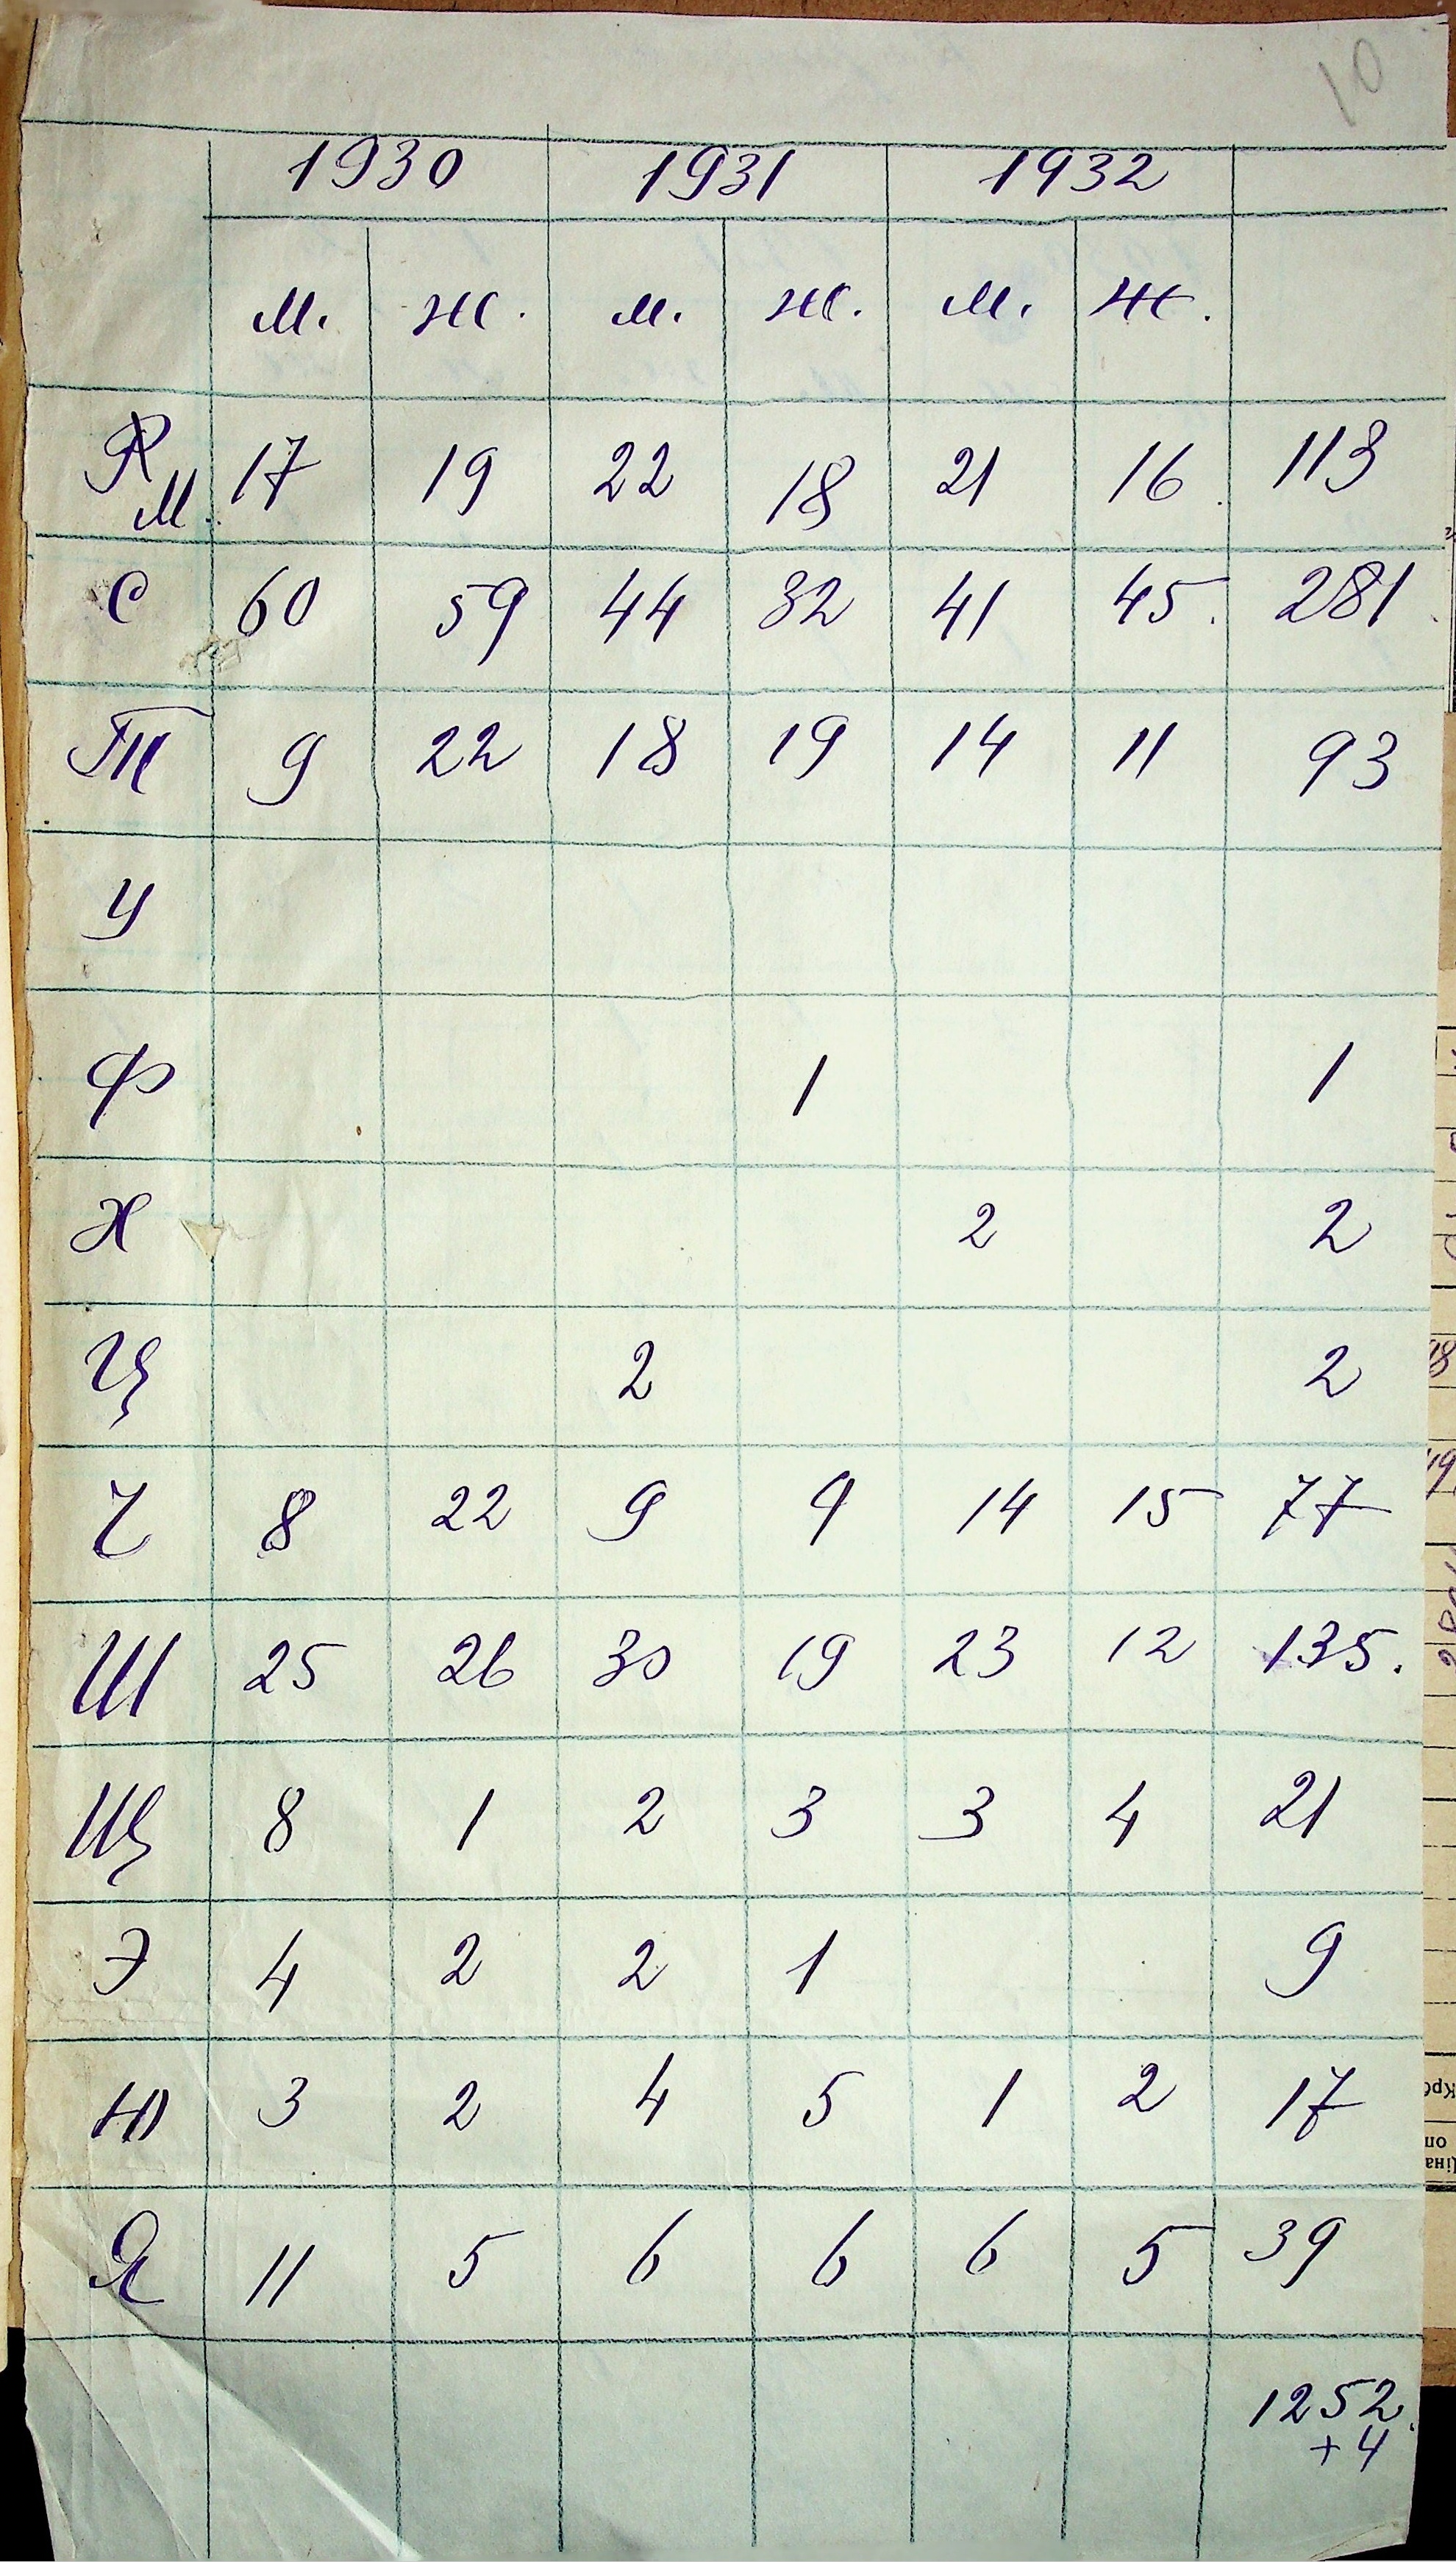 10
1930 1931 1932
м. ж. м. ж. м. ж.
Я
М. 17 19 22 18 21 16 113
С 60 59 44 32 41 45 281
Т 9 22 18 19 14 11 93
У
Ф 1 1
Х 2 2
Ц 2 2
Ч 8 22 9 9 14 15 77
Ш 25 26 30 19 23 12 135.
Щ 8 1 2 3 3 4 21
Э 4 2 2 1 9
Ю 3 2 4 5 1 2 17
Я 11 5 6 6 6 5 39
1252.
+4